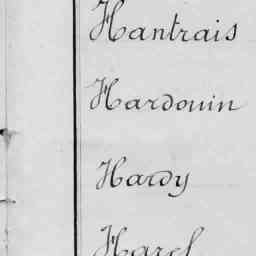 Hantrais
Hardouin
Hardy
Harel